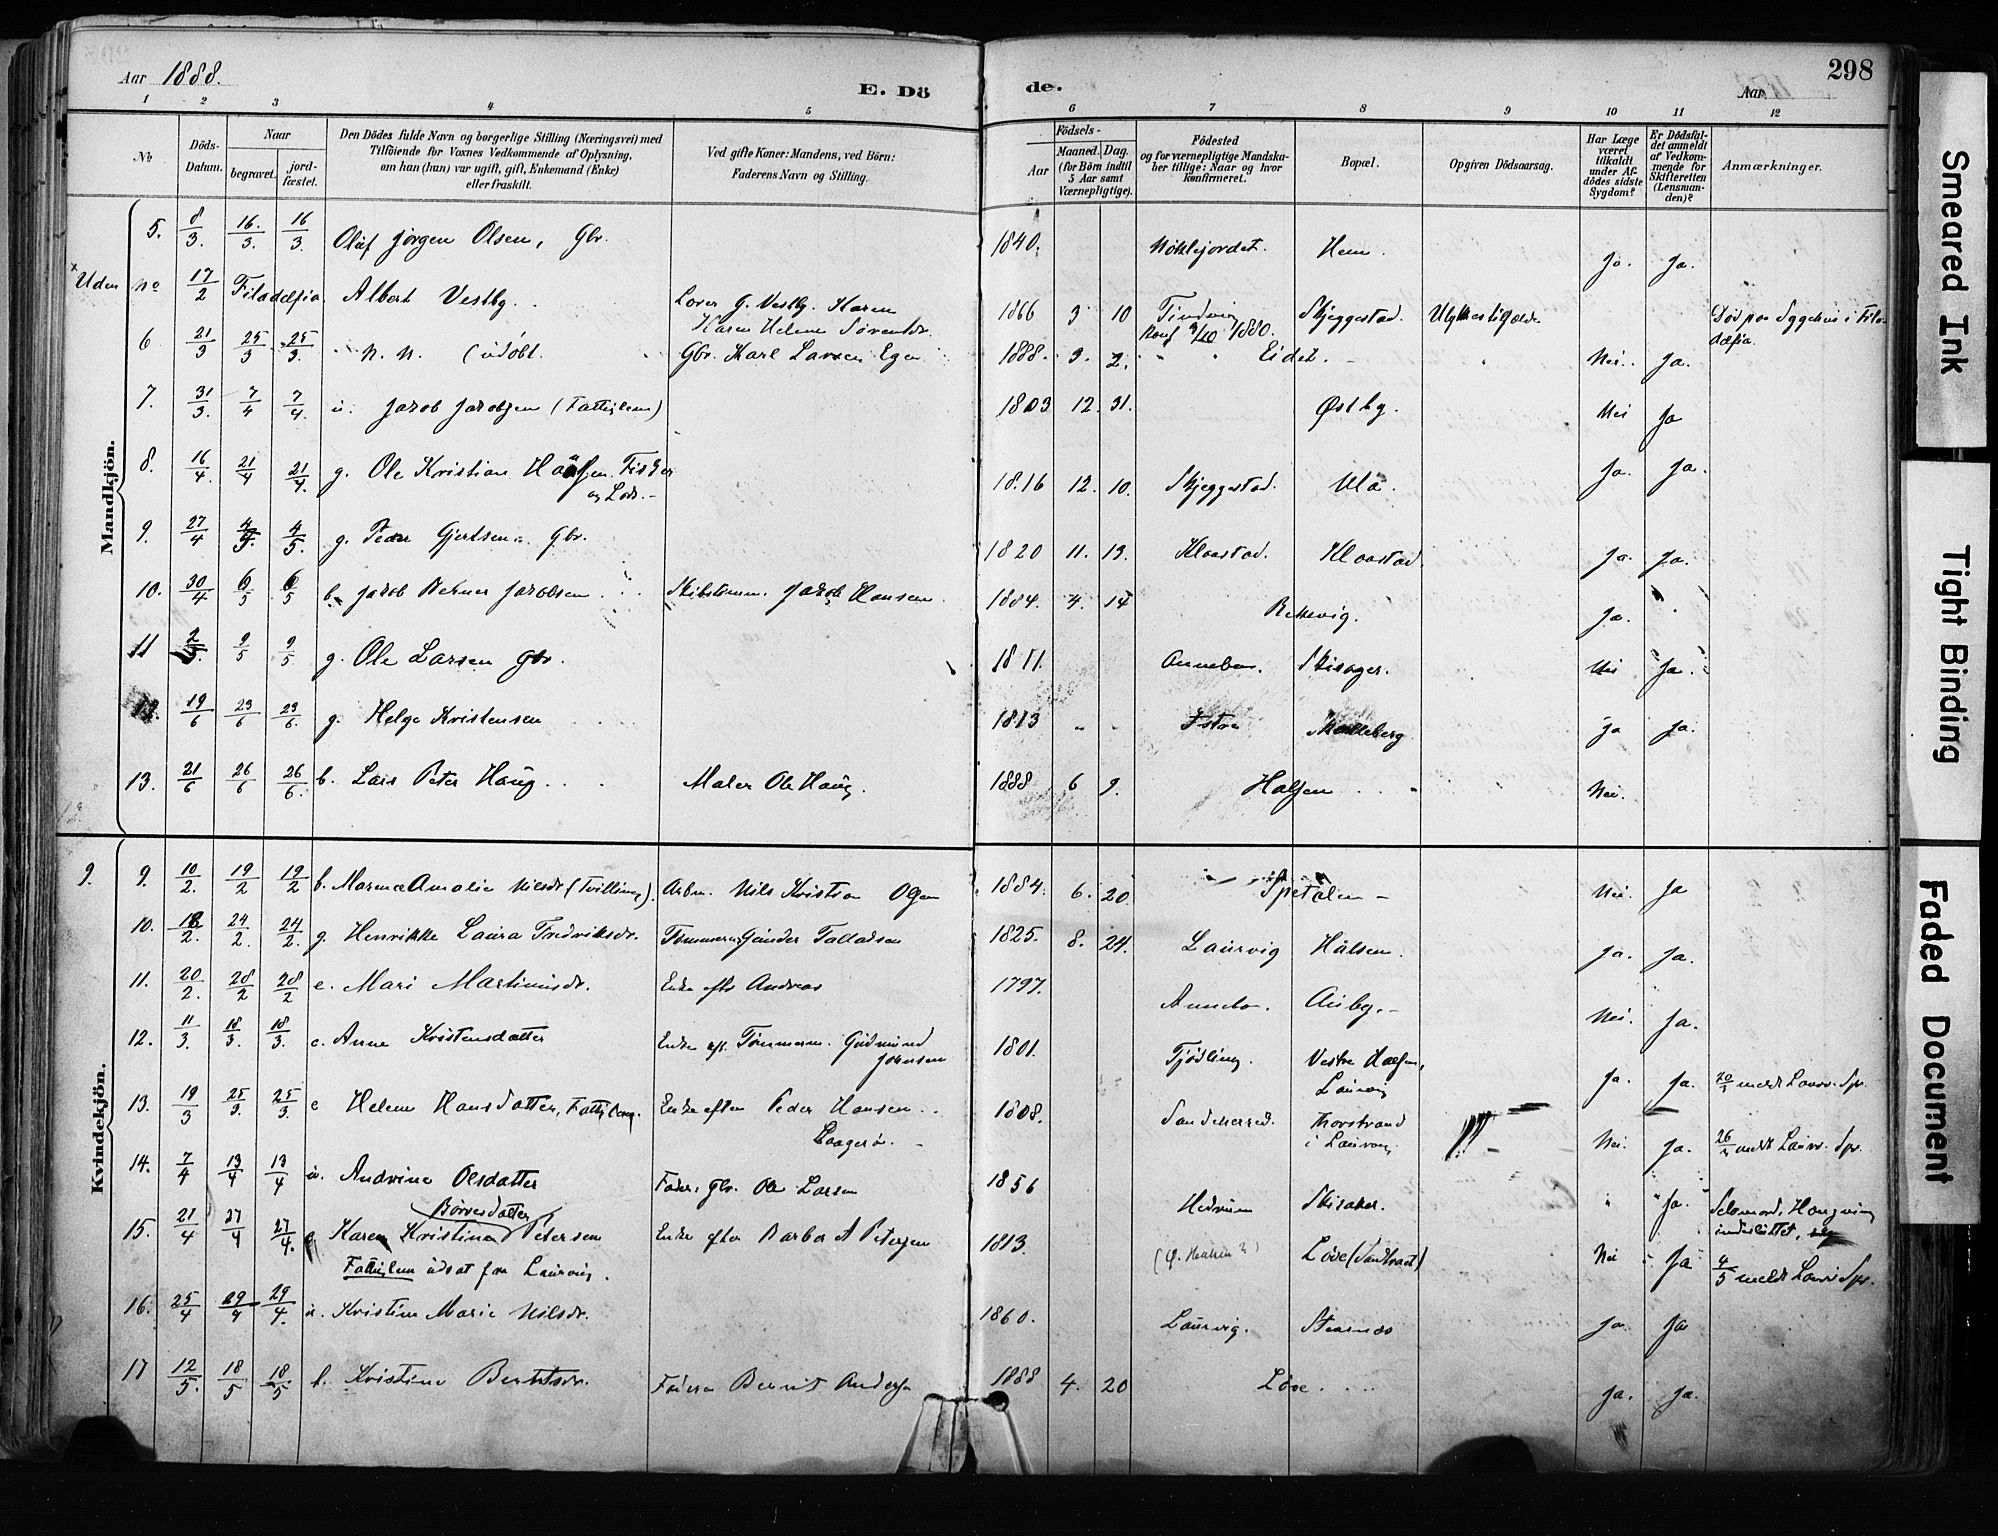 Aar 1888.
E. Dö
de.
Aar
298
1 2 3 4 5 6 7 8 9 10 11 12
No
Döds-Datum.
Naar
begravet.
jord-fæstet.
Den Dödes fulde Navn og borgerlige Stilling (Næringsvei) med
Tilföiende for Voxnes Vedkommende af Oplysning,
om han (hun) var ugift, gift, Enkemand (Enke)
eller fraskilt.
Ved gifte Koner: Mandens, ved Börn:
Faderens Navn og Stilling.
Födsels-
Aar
Maaned. Dag.
(for Börn indtil
5 Aar samt
Værnepligtige).
Födested
og for værnepligtige Mandska-
ber tillige: Naar og hvor
konfirmeret.
Bopæl.
Opgiven Dödsaarsag.
Har Læge
været
tilkaldt
under Af-
dödes sidste
Sygdom?
Er Dödsfal-
det anmeldt
af Vedkom-
mende for
Skifteretten
(Lensman-
den)?
Anmærkninger.
Mandkjön.
5. 8/3. 16./3. 16/3. Olaf Jörgen Olsen, Gbr. 1840. Nöklejordet. Hem. Ja. Ja.
Uden No 17/2 Filadelfia. Albert Vestby. Lover G. Vestby. Karen
Karen Helene Sörensdr. 1866 3 10 Tindvig Skjeggestad. Ulykkestilfælde Död paa Sygehus i Fila-
Konf 3/10 1880. delfia.
6 21/3 25/3 25/3. N. N. (udöbt. Gbr. Karl Larsen Egen 1888. 3. 2. Eidet. Nei. Ja.
7. 31/3. 7/4 7/4. u. Jacob Jacobsen (Fattiglem) 1803 12. 31. Østby. Nei Ja
8. 16/4. 21/4 21/4. g. Ole Kristian Fisker
og Lods. 1816 12. 10. Skjeggestad. Ula. Ja. Ja.
9. 27/4 4/5. 4/5. g. Peder Gjertsen. Gbr. 1820 11. 13. Klaastad. Klaastad. Ja. Ja.
10. 30/4 6/5 6/5 b. Jacob Berner Jacobsen Skibstömm. Jacob Hansen. 1884. 4. 14 Rekkevig. Ja.
11 2/5. 9/5 9/5. g. Ole Larsen Gbr. 1811. Annebo. Skisager. Nei Ja.
12. 19/6 23/6 23/6. g. Helge Kristensen 1813 Istre Ja Ja.
13. 21/6 26/6 26/6. b. Lars Peter Haug Maler Ole Haug. 1888 6 9. Halsen Nei.
Kvindekjön.
9. 9. 10/2. 19/2 19/2 b. Maren Amalie Nilsdr (Tvilling). Arbm. Nils Kristian Olsen 1884. 6. 20. Spetalen Nei. Ja
10. 18/2. 24/2. 24/2. g. Henrikke Laura Fredriksdr. Tömmerm. Gunder Talladsen 1825. 8. 24. Laurvig Halsen. Ja. Ja.
11. 20/2. 28/2 28/2 e. Mari Martinusdr. Enke efter Andreas 1797. Annebo. Auby. Nei. Ja.
12. 11/3. 18/3. 18/3. e. Anne Kristensdatter Enke eft. Tömmerm. Gudmund
1801. Tjödling. Vestre Halsen,
Laurvig Ja. Ja. meldt Laurv. Spr.
13. 19/3 25/3. 25/3. e Helene Hansdatter, Enke efter Peder Hansen
Laagerö. 1808. Sandeherred. Thorstrand
i Laurvig Nei. Ja. meldt Laurv. Spr.
14. 7/4 13/4 13/4 u. Andrine Olsdatter Fader, Gbr. Ole Larsen 1856 Hedrum Skisaker. Ja. Selvmord, Hængning
Börresdatter
15. 21/4 27/4 27/4. e Karen Kristine Petersen Enke efter Barbo A Petersen 1813. Löve (Sandtraet) Nei Ja 4/5 meldt Laurv Spr.
Fattiglem udsat fra Laurvig.
16. 25/4 29/4 29/4. u. Kristine Marie Nilsdr. 1860. Laurvig. Stavnæs Ja Ja
17 12/5. 18/5 18/5 b. Kristine Berntsdr. Faderen Bernt Andersen 1888 4. 20 Löve. Ja. Ja.
Smeared Ink
Tight Binding
Faded Document